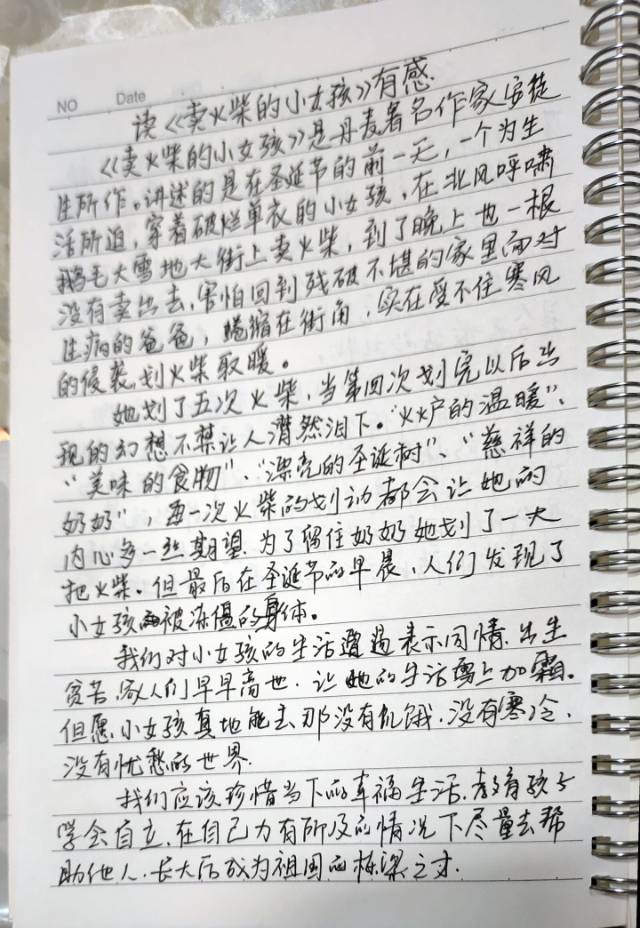 NO Date
读《卖火柴的小女孩》有感.
《卖火柴的小女孩》是丹麦著名作家安徒
生所作。讲述的是在圣诞节的前一天，一个为生
活所迫，穿着破烂单衣的小女孩，在北风呼啸
鹅毛大雪地大街上卖火柴，到了晚上也一根
没有卖出去，害怕回到残破不堪的家里面对
生病的爸爸，蜷缩在街角，实在受不住寒风
的侵袭，划火柴取暖。
她划了五次火柴，当第四次划完以后出
现的幻想不禁让人潸然泪下。“火炉的温暖”、
“美味的食物”、“漂亮的圣诞树”、“慈祥的
奶奶”，每一次火柴的划动都会让她的
内心多一丝期望.为了留住奶奶她划了一大
把火柴.但最后在圣诞节的早晨，人们发现了
小女孩被冻僵的身体。
我们对小女孩的生活遭遇表示同情.出生
贫苦.家人们早早离世.让她的生活雪上加霜。
但愿.小女孩真地能去.那没有饥饿.没有寒冷.
没有忧愁的世界.
我们应该珍惜当下的幸福生活.教育孩子
学会自立.在自己力有所及的情况下尽量去帮
助他人.长大后成为祖国的栋梁之才.